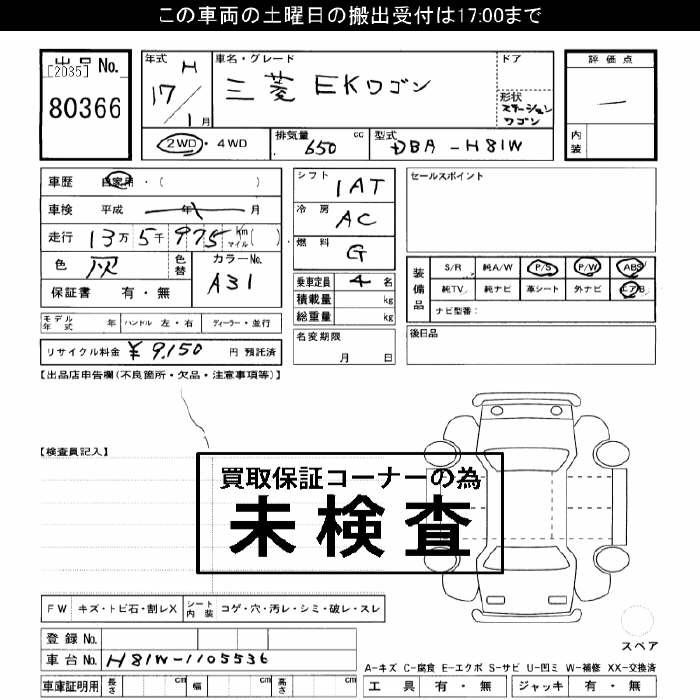 この車両の土曜日の搬出受付は17:00まで
出品 No.
[2035]
80366
年式 H
17/1月
車名・グレード
三菱 EKワゴン
ドア
形状
ステーション
ワゴン
評価点
内装
2WD・4WD
排気量 650 cc
型式 DBA-H81W
車歴 自家用・( )
車検 平成 年 月
走行 13万5千975 km マイル( )
色 灰
色替
カラーNo. A31
保証書 有・無
シフト 1AT
冷房 AC
燃料 G
乗車定員 4 名
積載量 kg
総重量 kg
セールスポイント
装備品
S/R 純A/W P/S P/W ABS
純TV 純ナビ 革シート 外ナビ エアB
ナビ型番:
モデル年式 年 ハンドル 左・右 ディーラー・並行
リサイクル料金 ¥9,150 円 預託済
名変期限
月 日
後日品
【出品店申告欄(不良箇所・欠品・注意事項等)】
【検査員記入】
買取保証コーナーの為
未検査
FW キズ・トビ石・割レX シート内装 コゲ・穴・汚レ・シミ・破レ・スレ
登録 No.
車台 No. H81W-1105536
車庫証明用 長さ cm 幅 cm 高さ cm
スペア
A-キズ C-腐食 E-エクボ S-サビ U-凹ミ W-補修 XX-交換済
工具 有・無 ジャッキ 有・無